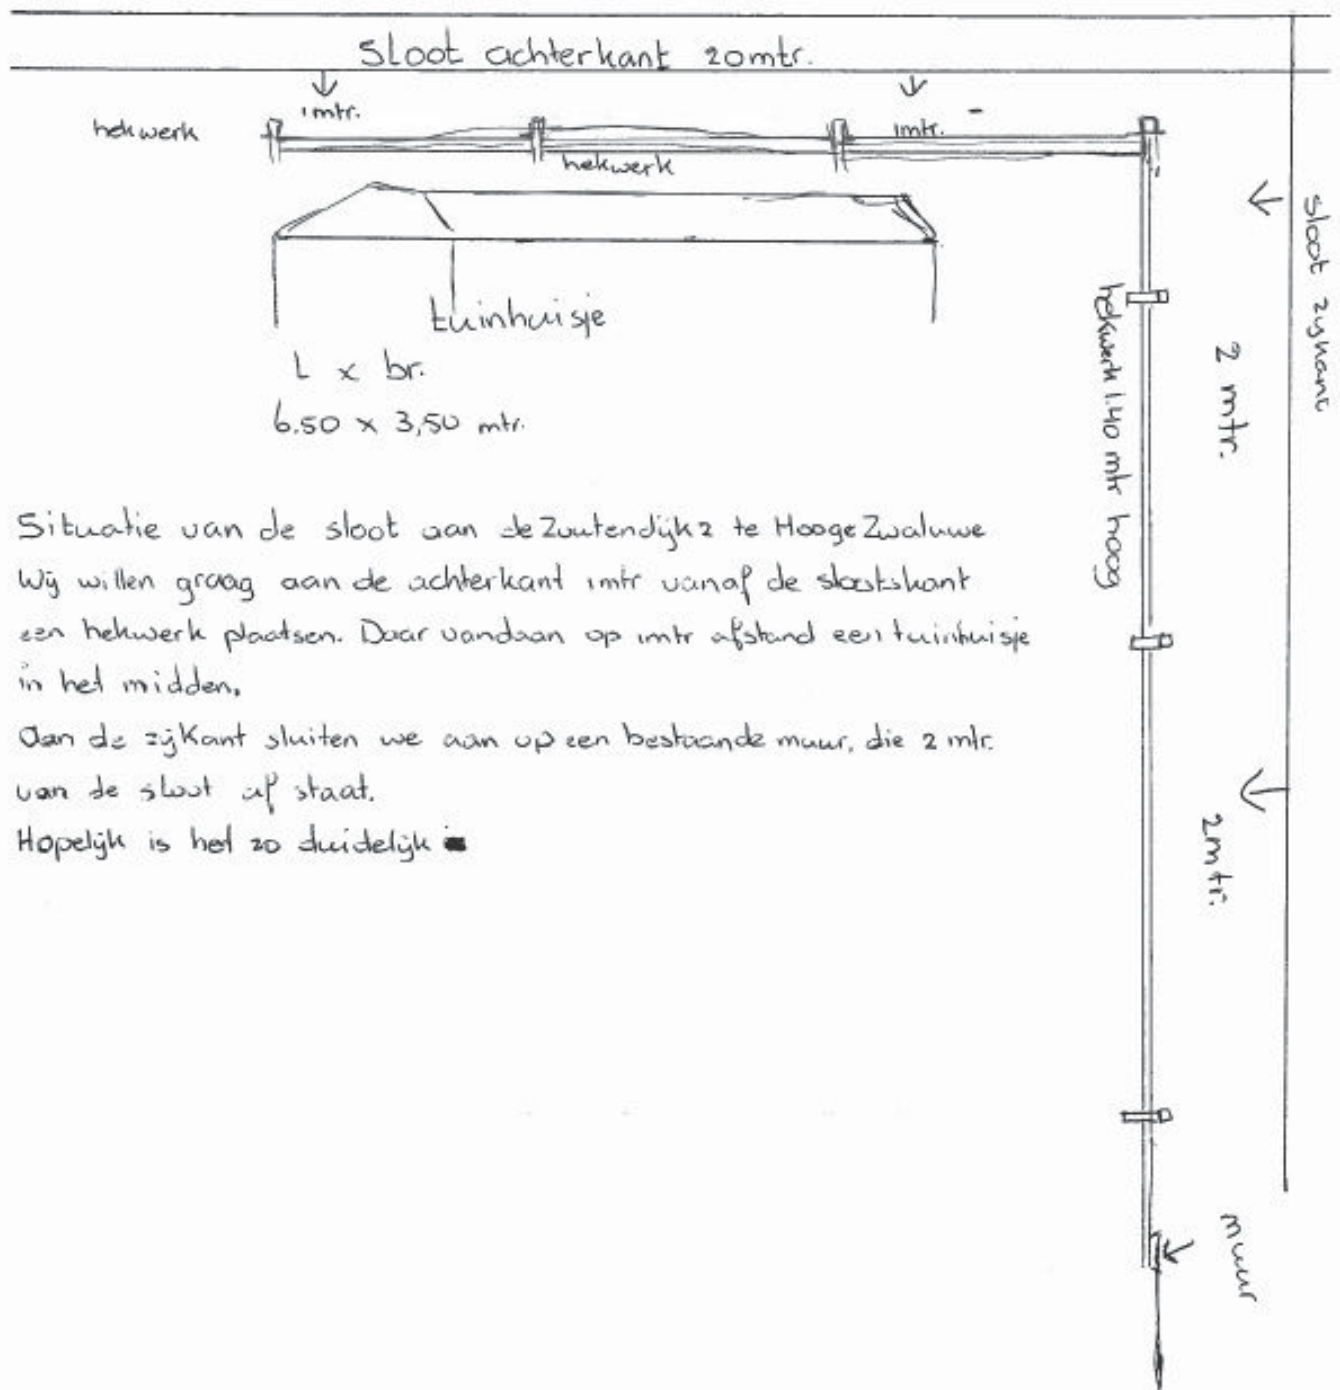 Sloot achterkant 20mtr.
1mtr.
1mtr.
hekwerk
hekwerk
sloot zijkant
tuinhuisje
hekwerk 1.40 mtr hoog
2 mtr.
L x br.
6.50 x 3,50 mtr.
Situatie van de sloot aan de Zoutendijk 2 te Hooge Zwaluwe
Wij willen graag aan de achterkant 1mtr vanaf de slootskant
een hekwerk plaatsen. Daar vandaan op 1mtr afstand een tuinhuisje
in het midden.
Aan de zijkant sluiten we aan op een bestaande muur, die 2 mtr.
van de sloot af staat.
Hopelijk is het zo duidelijk
2mtr.
muur